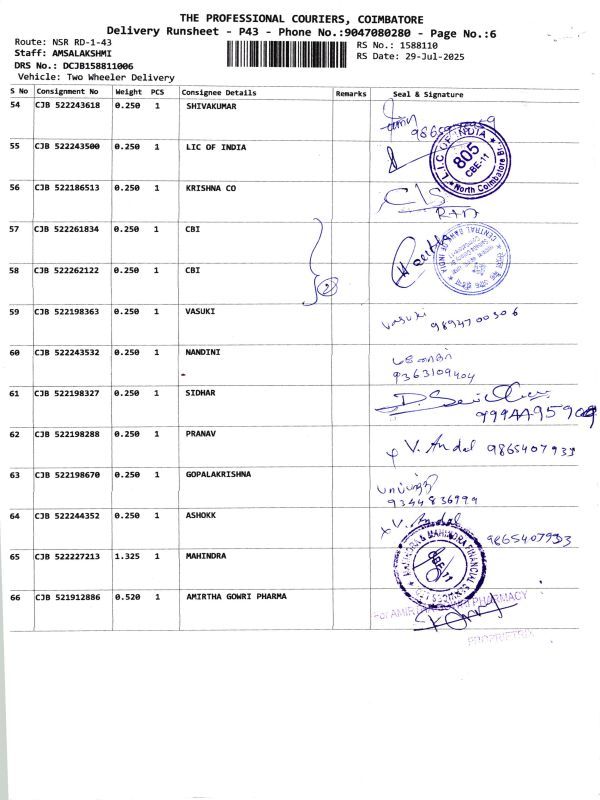 THE PROFESSIONAL COURIERS, COIMBATORE
Delivery Runsheet - P43 - Phone No.:9047080280 - Page No.:6
Route: NSR RD-1-43
Staff: AMSALAKSHMI
DRS No.: DCJB158811006
Vehicle: Two Wheeler Delivery
RS No.: 1588110
RS Date: 29-Jul-2025
S No Consignment No Weight PCS Consignee Details Remarks Seal & Signature
54 CJB 522243618 0.250 1 SHIVAKUMAR
55 CJB 522243500 0.250 1 LIC OF INDIA
L.I.C OF INDIA
805
CBE-11
North Coimbatore Br.
56 CJB 522186513 0.250 1 KRISHNA CO
57 CJB 522261834 0.250 1 CBI
58 CJB 522262122 0.250 1 CBI
2
CENTRAL BANK OF INDIA
59 CJB 522198363 0.250 1 VASUKI
vasuki 9894700506
60 CJB 522243532 0.250 1 NANDINI
9363109404
61 CJB 522198327 0.250 1 SIDHAR
62 CJB 522198288 0.250 1 PRANAV
V. Andal 9865407933
63 CJB 522198670 0.250 1 GOPALAKRISHNA
9344836999
64 CJB 522244352 0.250 1 ASHOKK
V. Andal
9865407933
65 CJB 522227213 1.325 1 MAHINDRA
MAHINDRA & MAHINDRA FINANCIAL SERVICES LTD
CBE-11
66 CJB 521912886 0.520 1 AMIRTHA GOWRI PHARMA
For AMIRTHA GOWRI PHARMACY
PROPRIETRIX